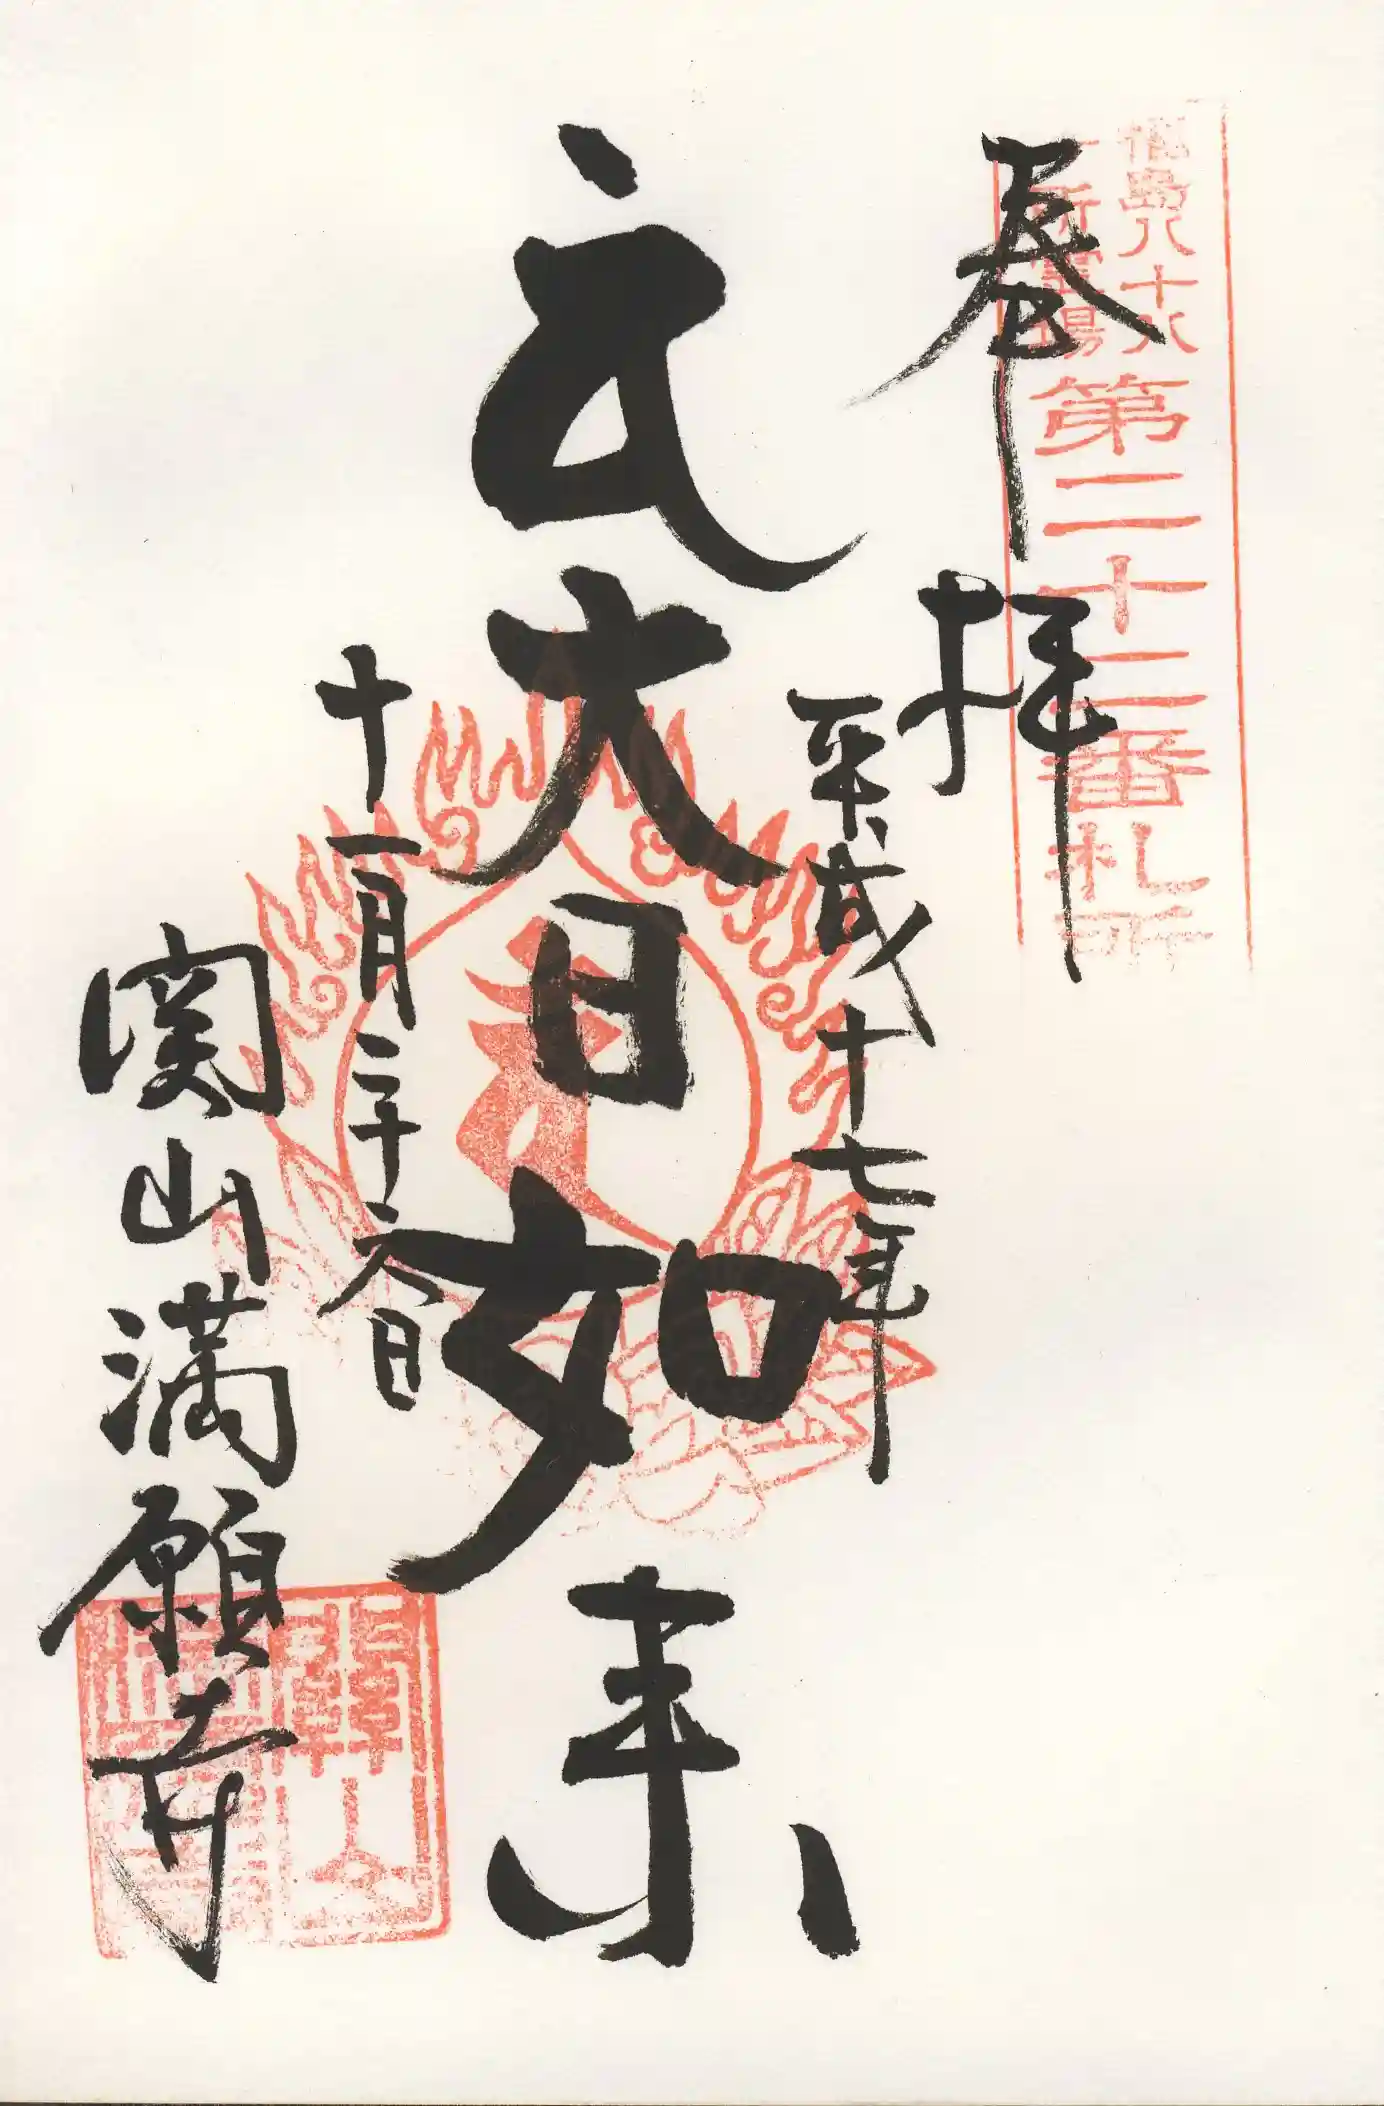 福島八十八
所霊場
第二十二番札所
奉拝
平成十七年
𑖪𑖽大日如来
十一月二十 日
関山満願寺